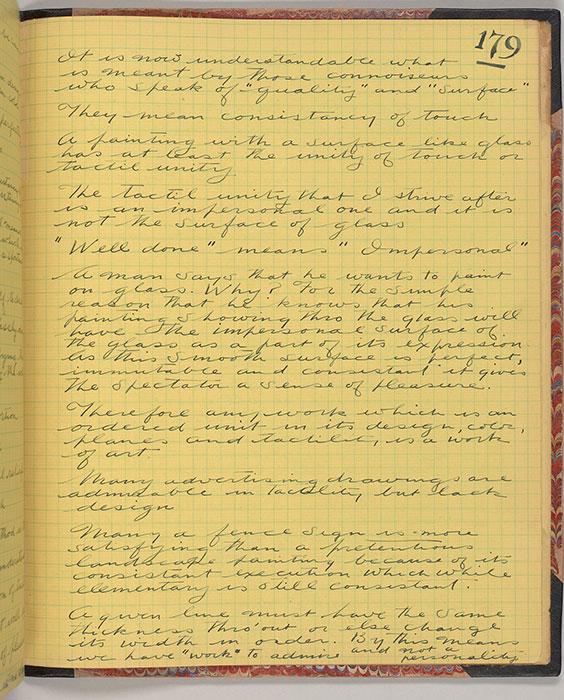 179
It is now understandable what
is meant by those connoiseurs
who speak of "quality" and "surface"
They mean consistancy of touch
A painting with a surface like glass
has at least the unity of touch or
tactil unity
The tactil unity that I strive after
is an impersonal one and it is
not the surface of glass
"Well done" means "Impersonal"
A man says that he wants to paint
on glass. Why? For the simple
reason that he knows that his
painting showing thro the glass will
have the impersonal surface of
the glass as a part of its expression.
As this smooth surface is perfect,
immutable and consistant it gives
the spectator a sense of pleasure.
Therefore any work which is an
ordered unit in its design, color,
planes and tactility, is a work
of art
Many advertising drawings are
admirable in tactility, but lack
design
Many a fence sign is more
satisfying than a pretentious
landscape painting because of its
consistant execution which while
elementary is still consistant.
A given line must have the same
thickness thro'out or else change
its width in order. By this means
we have "work" to admire and not a
personality